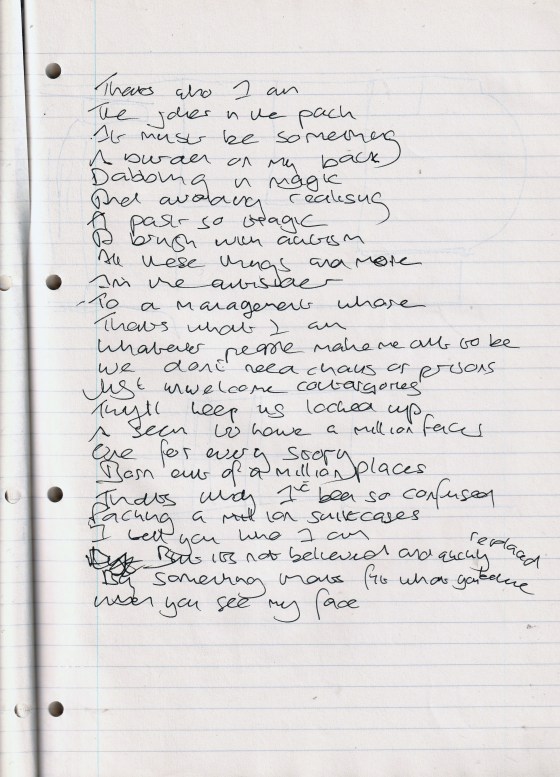 Thats who I am
The joker in the pack
It must be something
A burden on my back
Dabbling in magic
And avoiding realising
A past so tragic
A brush with autism
All these things and more
I'm the outsider
To a management whore
Thats what I am
Whatever people make me out to be
We don't need chains or prisons
Just unwelcome catergories
They'll keep us locked up
I seem to have a million faces
One for every story
Born out of a million places
Thats why I've been so confused
Packing a million suitcases
I tell you who I am
But its not believed and quickly replaced
By something thats fit what you believe
When you see my face